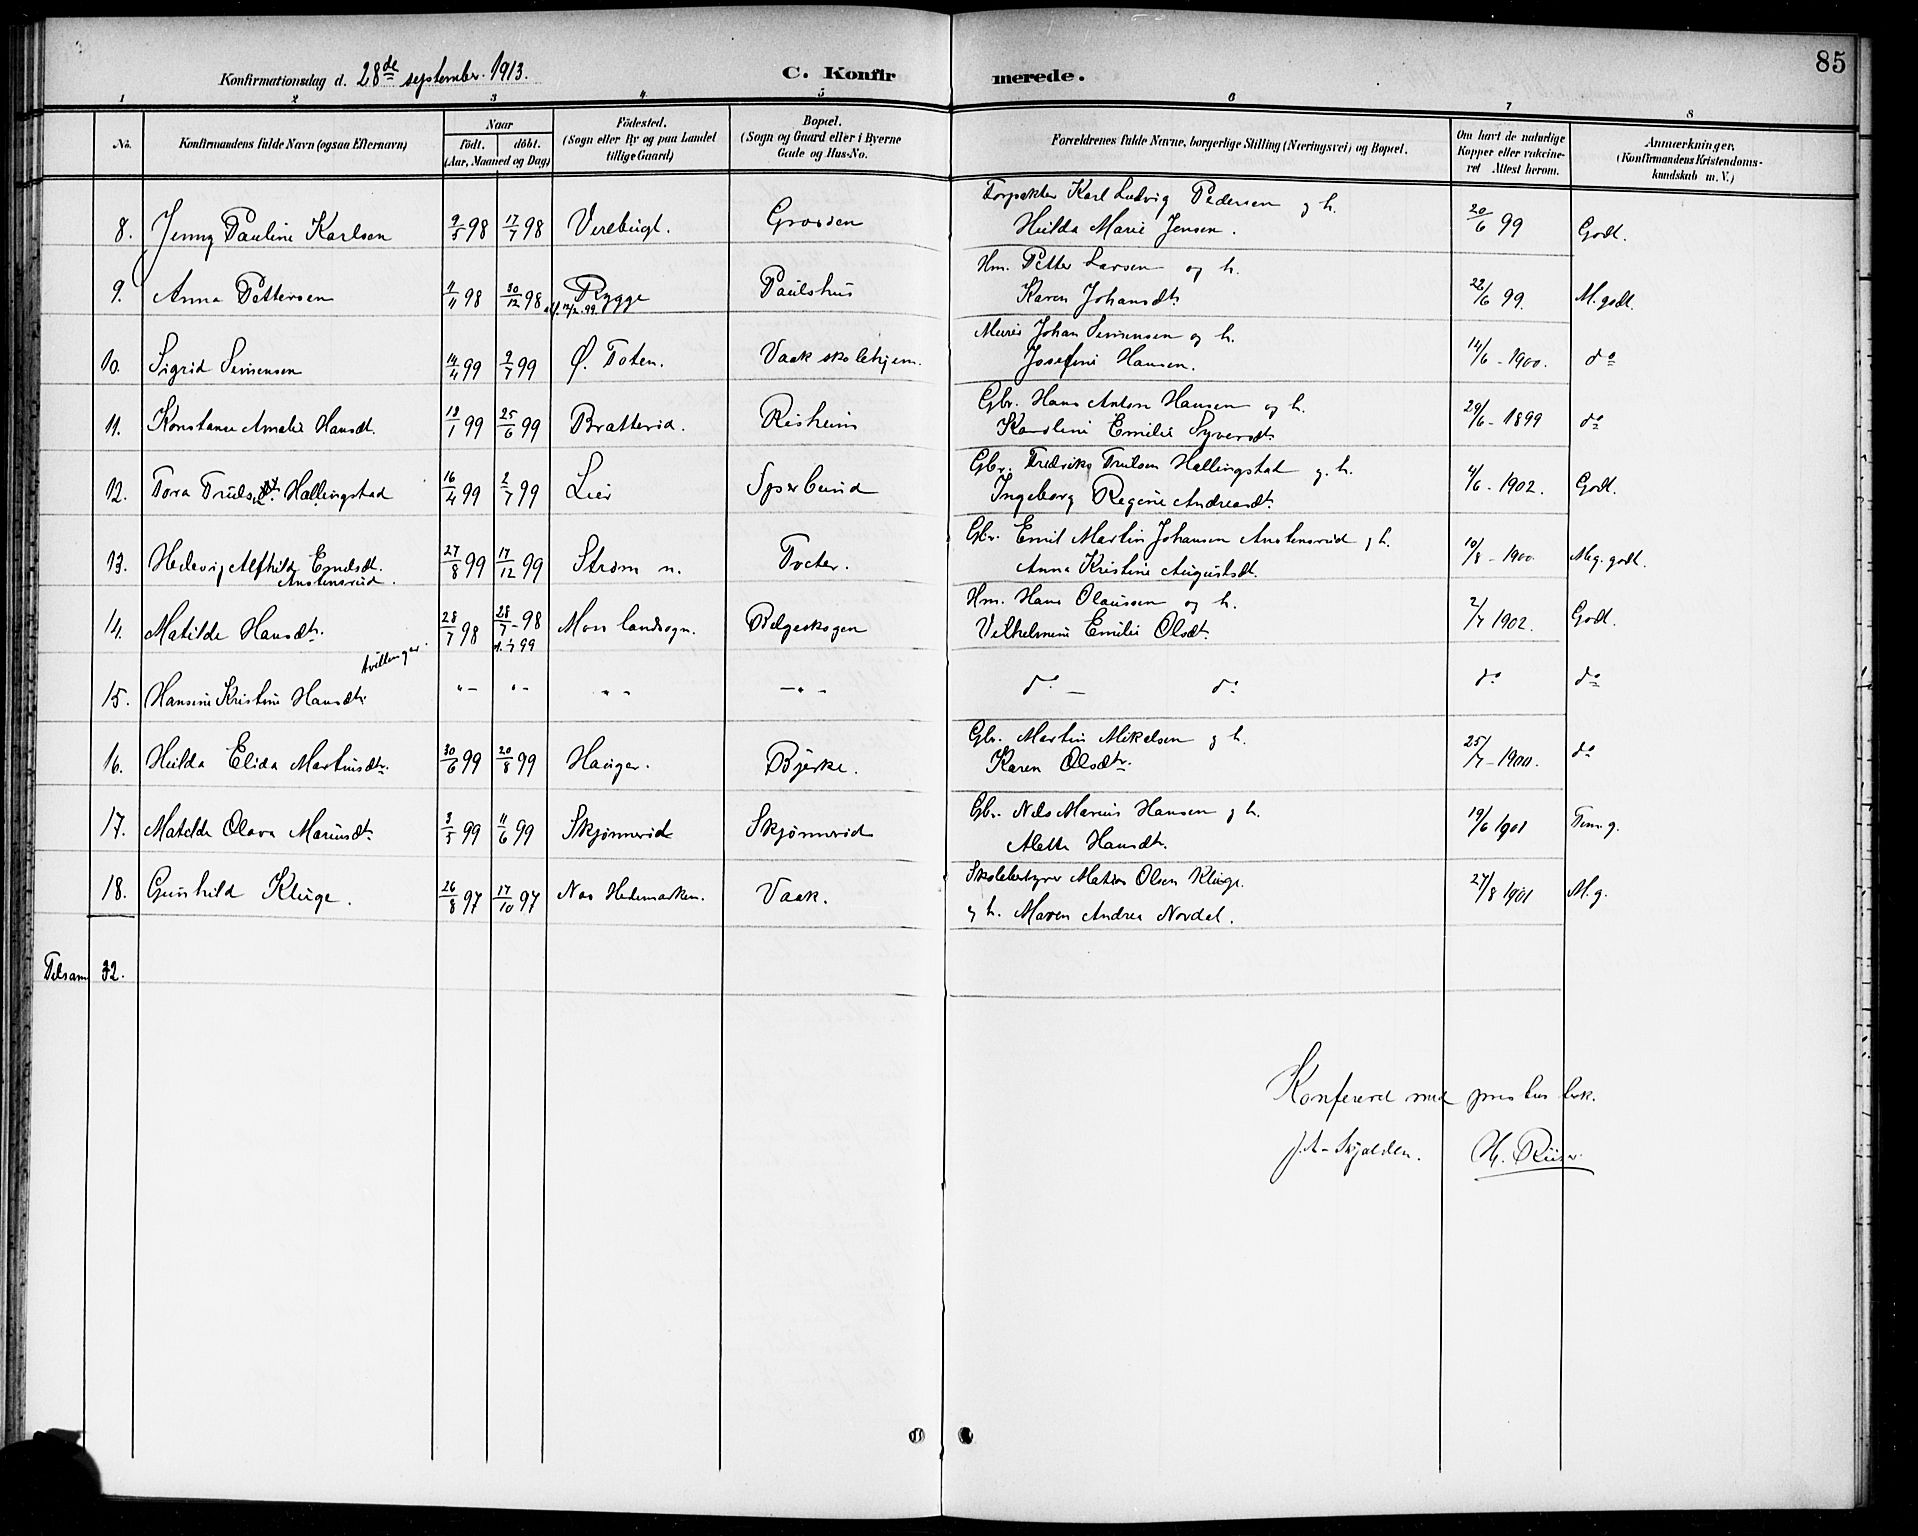 85
Konfirmationsdag d. 28de september 1913. C. Konfirmerede.
1 2 3 4 5 6 7 8
No. Konfirmandens fulde Navn (ogsaa Efternavn) Naar födt. döbt. (Aar, Maaned og Dag) Födested. (Sogn eller By og paa Landet tillige Gaard) Bopæl. (Sogn og Gaard eller i Byerne Gade og Hus-No. Forældrenes fulde Navne, borgerlige Stilling (Næringsvei) og Bopæl. Om havt de naturlige Kopper eller vaccineret Attest herom. Anmærkninger, (Konfirmandens Kristendomskundskab m. V.)
8. Jenny Pauline Karlsen 9/5 98 17/7 98 Verebugt. Grossen Forpakter Karl Ludvig Pedersen og h.
Hilda Marie Jensen. 20/6 99 Godt.
9. Anna Pettersen 11/11 98 30/12 98 Rygge Paulshus Hm. Petter Larsen og h.
Karen Johansdt. 22/6 99. M. godt.
10. Sigrid Simensen 14/4 99 2/7 99 Ø. Toten. Vaak skolehjem. Murer Johan Simensen og h.
Josefine Hansen. 14/6 - 1900. do
11. Konstanse Amalie Hansdt. 18/1 99 25/6 99 Bratterud. Risheim Gbr. Hans Anton Hansen og h.
Karoline Emilie Syversdt. 29/6 - 1899 do
12. Tora Trulsdt. Hallingstad 16/4 99 2/7 99 Lier Sperbund Gbr. Fredrik Trulsen Hallingstad og h.
Ingeborg Regine Andreasdt. 4/6 - 1902. Godt.
13. Hedevig Alfhild Emilsdt. Austensrud. 27/8 99 17/12 99 Strøm n. Tveter. Gbr. Emil Martin Johansen Austensrud og h.
Anna Kristine Augustsdt. 10/8 - 1900. Meg. godt.
14. Matilde Hansdt. 28/7 98 28/7 - 98 Moss landsogn. Belgeskogen Hm. Hans Olaussen og h.
Vilhelmine Emilie Olsdt. 2/7 1902. Godt.
tvillinger
15. Hansine Kristine Hansdt. "- "- " " -"- do - do do do
16. Hilda Elida Martinsdt. 30/6 99 20/8 99 Hauger. Bjerke. Gbr. Martin Mikelsen og h.
Karen Olsdtr. 25/7 - 1900. do
17. Matilde Olava Mariusdt. 3/5 99 11/6 99 Skjønnerød Skjønnerød Gbr. Nils Marius Hansen og h.
Alette Hansdt. 19/6 1901 Tem. g.
18. Gunhild Kluge. 26/8 97 17/10 97 Nes Hedemarken. Vaak. Skolebestyrer Matias Olsen Kluge.
og h. Maren Andrea Nordal. 27/8 1901 M. g.
Tilsam 32.
Konfereret med prestens bok.
H. Riiser